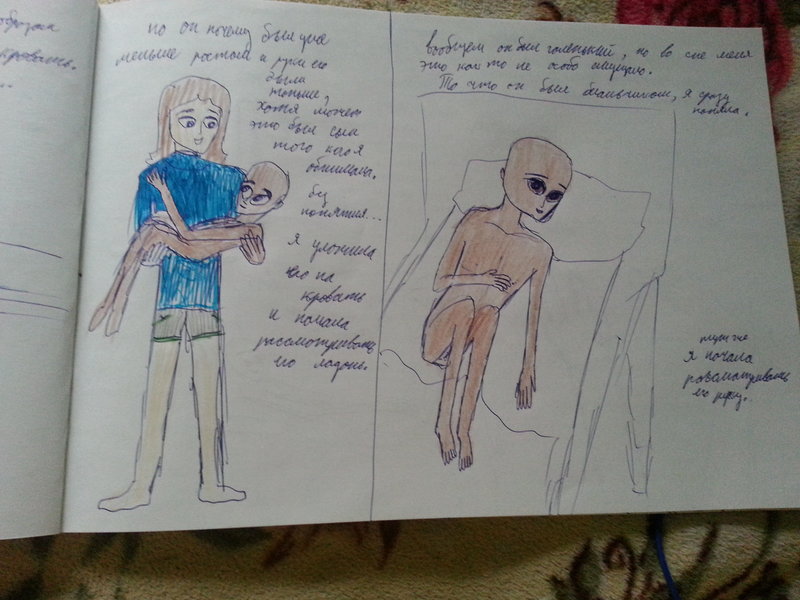 кровать.
но он почему был уже
меньше ростом и руки его
были
тоньше,
хотя может
это был сын
того кого я
обнимала.
без
понятия...
я уложила
его на
кровать
и начала
рассматривать
его ладонь.
вообщем он был голенький, но во сне меня
это как то не особо смущало.
То что он был мальчиком, я сразу
поняла.
я начала
рассматривать
его руку.